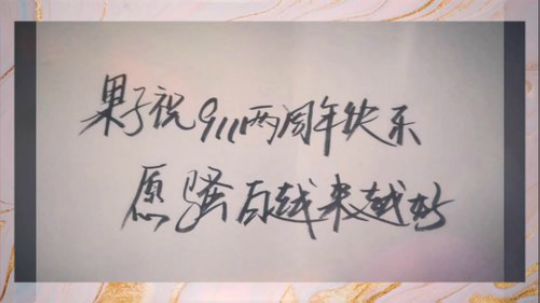 果子祝911两周年快乐
愿骚百越来越好